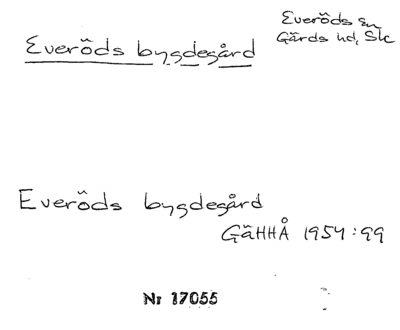 Everöds bygdegård
Everöds sn
Gärds hd, Sk
Everöds bygdegård
GäHHÅ 1954:99
Nr 17055